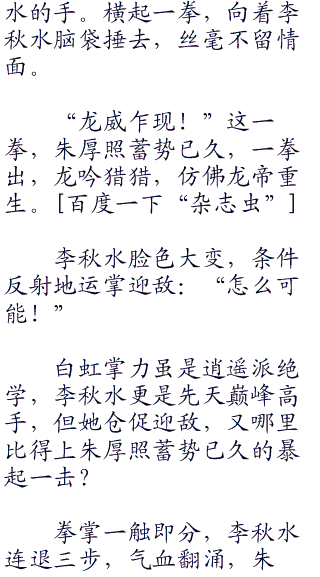 水的手。横起一拳，向着李
秋水脑袋捶去，丝毫不留情
面。
“龙威乍现！”这一
拳，朱厚照蓄势已久，一拳
出，龙吟猎猎，仿佛龙帝重
生。[百度一下“杂志虫”]
李秋水脸色大变，条件
反射地运掌迎敌：“怎么可
能！”
白虹掌力虽是逍遥派绝
学，李秋水更是先天巅峰高
手，但她仓促迎敌，又哪里
比得上朱厚照蓄势已久的暴
起一击？
拳掌一触即分，李秋水
连退三步，气血翻涌，朱